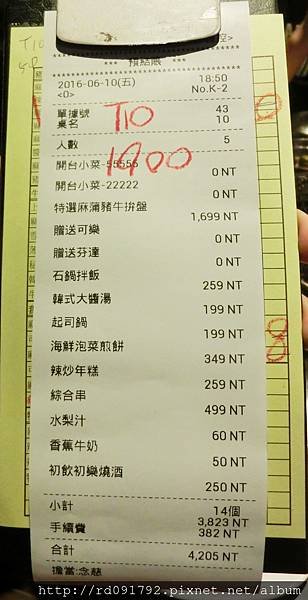 T10
*** 預結帳 ***
2016-06-10(五) 18:50
<0> No.K-2
單據號 43
桌名 10
T10
人數 5
1900
開台小菜-55555
0 NT
開台小菜-22222
0 NT
特選麻蒲豬牛拚盤
1,699 NT
贈送可樂
0 NT
贈送芬達
0 NT
石鍋拌飯
259 NT
韓式大醬湯
199 NT
起司鍋
199 NT
海鮮泡菜煎餅
349 NT
辣炒年糕
259 NT
綜合串
499 NT
水梨汁
60 NT
香蕉牛奶
50 NT
初飲初樂燒酒
250 NT
小計 14個
3,823 NT
手續費 382 NT
合計 4,205 NT
擔當:念慈
http://rd091792.pixnet.net/album